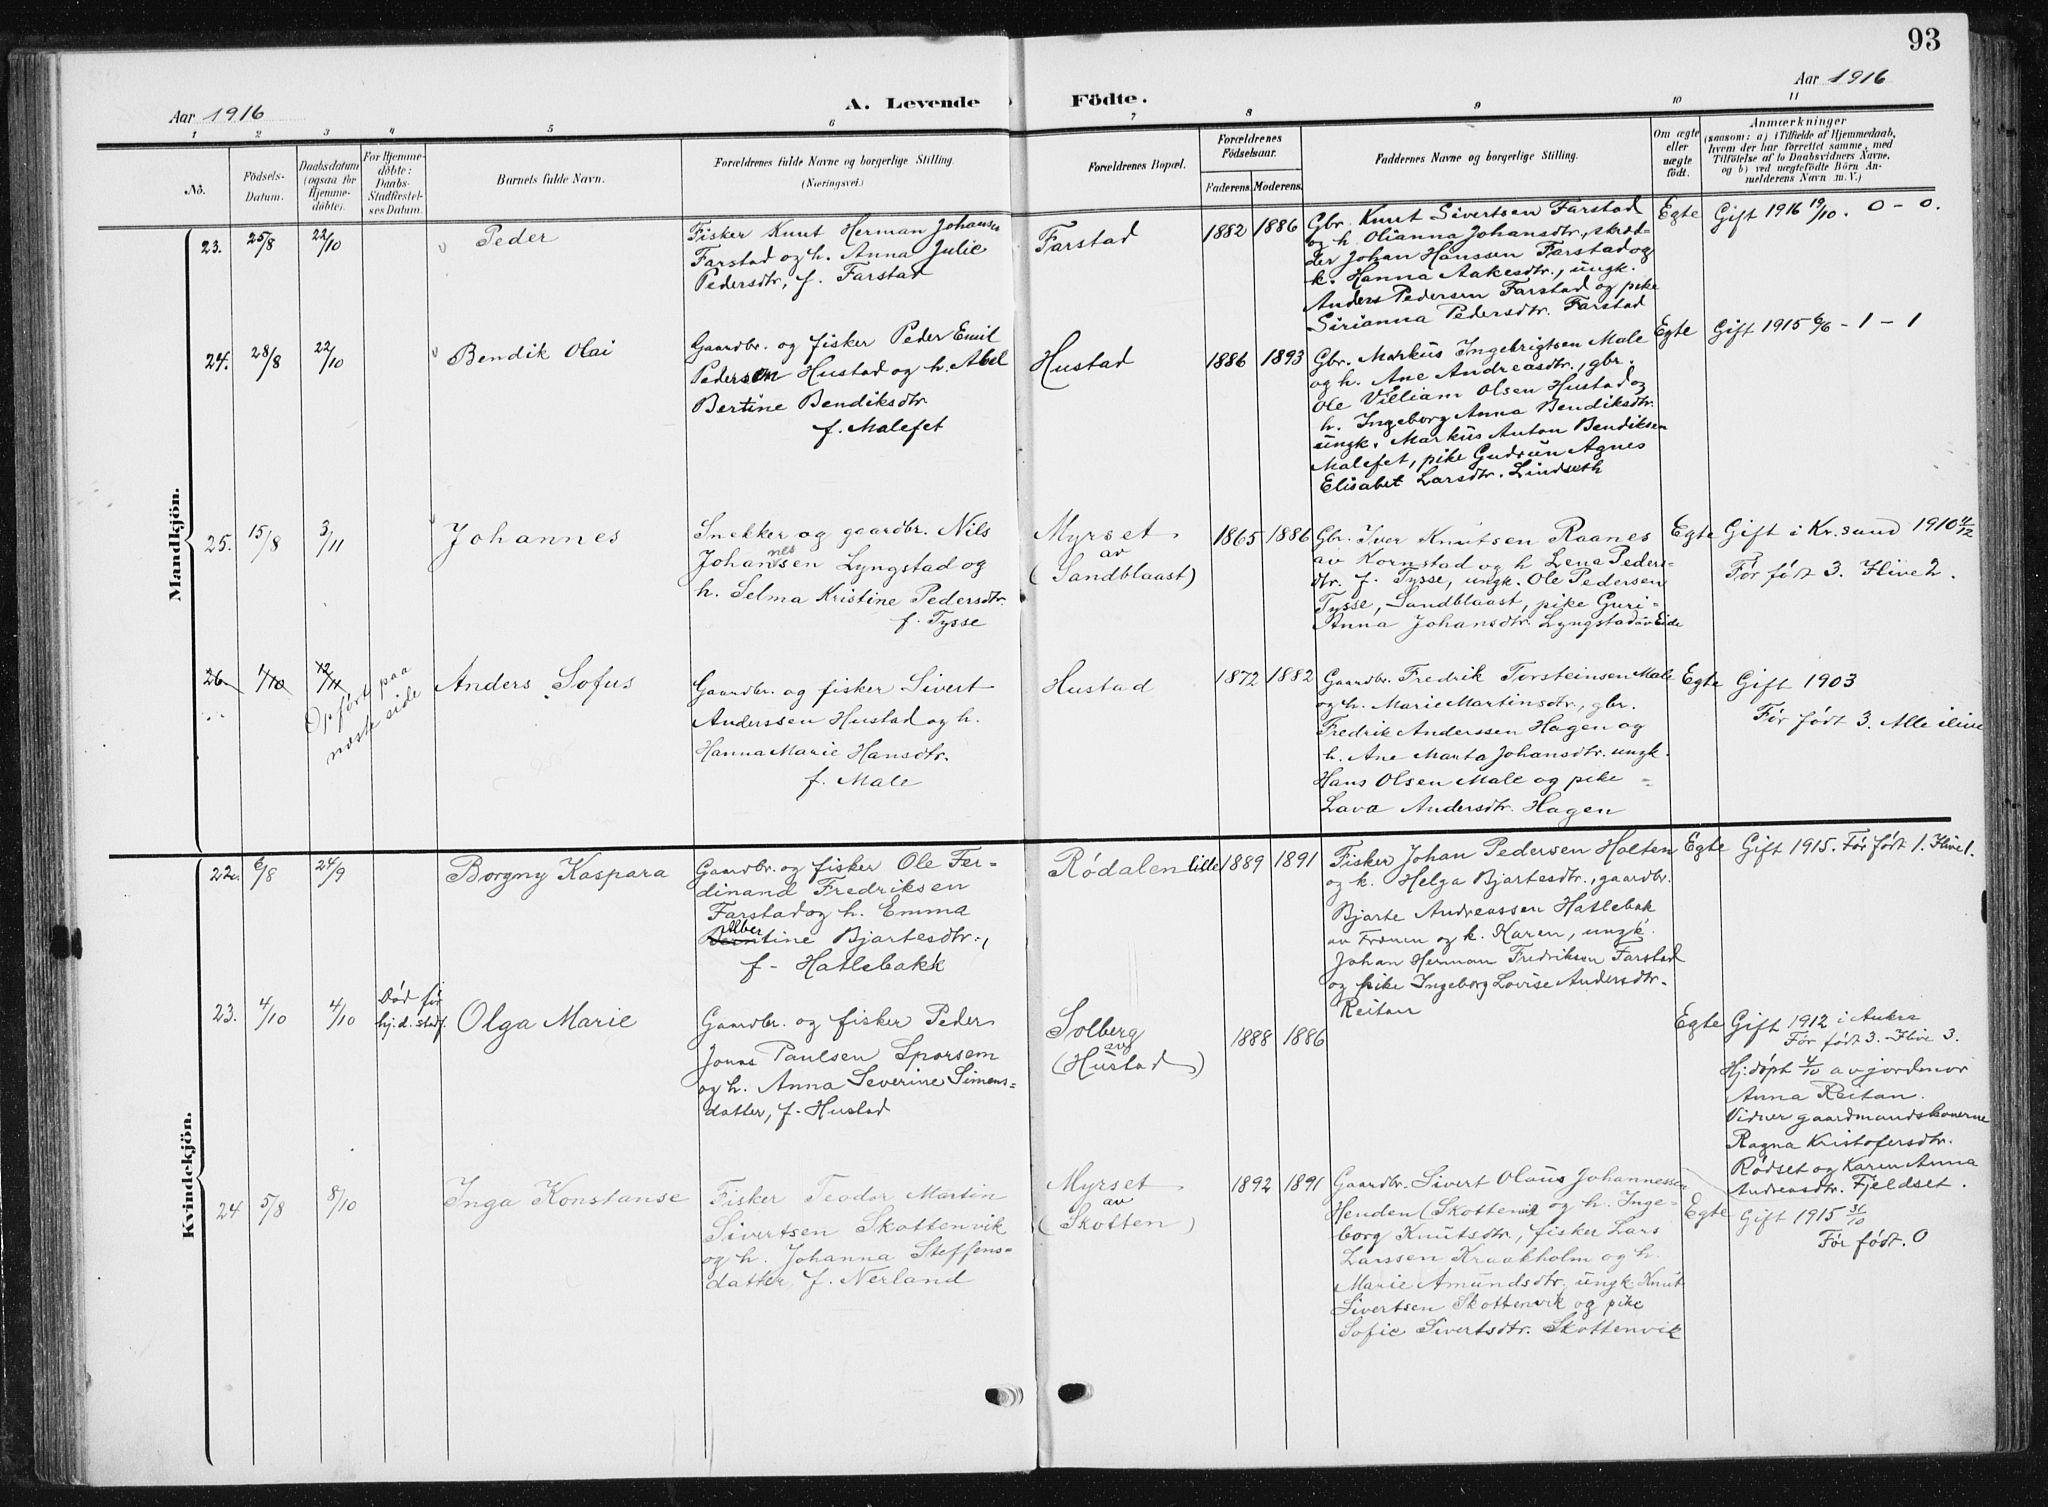 93
Aar 1916
A. Levende Födte.
Aar 1916
1 2 3 4 5 6 7 8 9 10 11
No.
Födsels-
Datum.
Daabsdatum
(ogsaa for
Hjemme-
döbte).
For Hjemme-
döbte:
Daabs-
Stadfæstel-
ses Datum.
Barnets fulde Navn.
Forældrenes fulde Navne og borgerlige Stilling.
(Næringsvei.)
Forældrenes Bopæl.
Forældrenes
Födselsaar.
Faderens. Moderens.
Faddernes Navne og borgerlige Stilling.
Om ægte
eller
uægte
født.
Anmærkninger
(saasom: a) i Tilfælde af Hjemmedaab,
hvem der har forrettet samme, med
Tilføielse af to Daabsvidners Navne,
og b) ved uægtefödte Börn An-
melderens Navn m. V.)
Mandkjön.
23. 25/8 22/10 Peder
Fisker Knut Herman Johansen
Farstad og h. Anna Julie
Pedersdtr, f. Farstad
Farstad
1882 1886
Gbr. Knut Sivertsen Farstad
og h. Olianna Johansdtr., skræd-
der Johan Hanssen Farstad og
k. Hanna Aakesdtr., ungk.
Anders Pedersen Farstad og pike
Sirianna Pedersdtr. Farstad
Egte
Gift 1916 19/10. 0 - 0.
24. 28/8 22/10 Bendik Olai
Gaardbr. og fisker Peder Emil
Pedersen Hustad og h. Abel
Bertine Bendiksdtr.
f. Malefet
Hustad
1886 1893
Gbr. Markus Ingebrigtsen Male
og h. Ane Andreasdtr., gbr.
Ole Villiam Olsen Hustad og
h. Ingeborg Anna Bendiksdtr.
ungk. Markus Anton Bendiksen
Malefet, pike Gudrun Agnes
Elisabet Larsdtr. Lindseth
Egte
Gift 1915 6/6 - 1 - 1
25. 15/8 3/11 Johannes
Snekker og gaardbr. Nils
Johannessen Lyngstad og
h. Selma Kristine Pedersdtr.
f. Tysse
Myrset
av
(Sandblaast)
1865 1886
Gbr. Iver Knutsen Raanes
av Kornstad og h Lena Peders-
dtr. f. Tysse, ungk. Ole Pedersen
Tysse, Sandblaast, pike Guri-
Anna Johansdtr. Lyngstad av Eide
Egte
Gift i Kr.sund 1910 4/12
Før født 3. Ilive 2.
26. 1/10 12/11
Opført paa
næste side
Anders Sofus
Gaardbr. og fisker Sivert
Anderssen Hustad og h.
Hanna Marie Hansdtr.
f. Male
Hustad
1872 1882
Gaardbr. Fredrik Torsteinsen Male
og h. Marie Martinsdtr, gbr.
Fredrik Anderssen Hagen og
h. Ane Marta Johansdtr. ungk.
Hans Olsen Male og pike
Lava Andersdtr. Hagen
Egte
Gift 1903
Før født 3. Alle ilive
Kvindekjön.
22. 6/8 24/9 Borgny Kaspara
Gaardbr. og fisker Ole Fer-
dinand Fredriksen
Farstad og h. Emma
Alber
Berntine Bjartesdtr.,
f. Hatlebakk
Rødalen lille
1889 1891
Fisker Johan Pedersen Holten
og k. Helga Bjartesdtr., gaardbr.
Bjarte Andreassen Hatlebak
av Frænen og k. Karen, ungk.
Johan Herman Fredriksen Farstad
og pike Ingeborg Lovise Andersdtr.
Reitan
Egte
Gift 1915. Før født 1. Ilive 1.
23. 4/10 4/10
Død før
hj.d. stadf.
Olga Marie
Gaardbr. og fisker Peder
Jonas Paulsen Sporsem
og h. Anna Severine Simens-
datter, f. Hustad
Solberg
av
(Hustad)
1888 1886
Egte
Gift 1912 i Aukra
Før født 3. Ilive 3.
Hj.døpt 4/10 av jordmor
Anna Reitan.
Vidner gaardmandskonerne
Ragna Kristofersdtr.
Rødset og Karen Anna
Andreasdtr. Fjeldset.
24 5/8 8/10 Inga Konstanse
Fisker Teodor Martin
Sivertsen Skottenvik
og h. Johanna Steffens-
datter, f. Nerland
Myrset
av
(Skotten)
1892 1891
Gaardbr. Sivert Olaus Johannessen
Henden (Skottenvik og h. Inge-
borg Knutsdtr., fisker Lars
Larssen Kraakholm og h.
Marie Amundsdtr. ungk. Knut
Sivertsen Skottenvik og pike
Sofie Sivertsdtr. Skottenvik
Egte
Gift 1915 31/10
Før født. 0